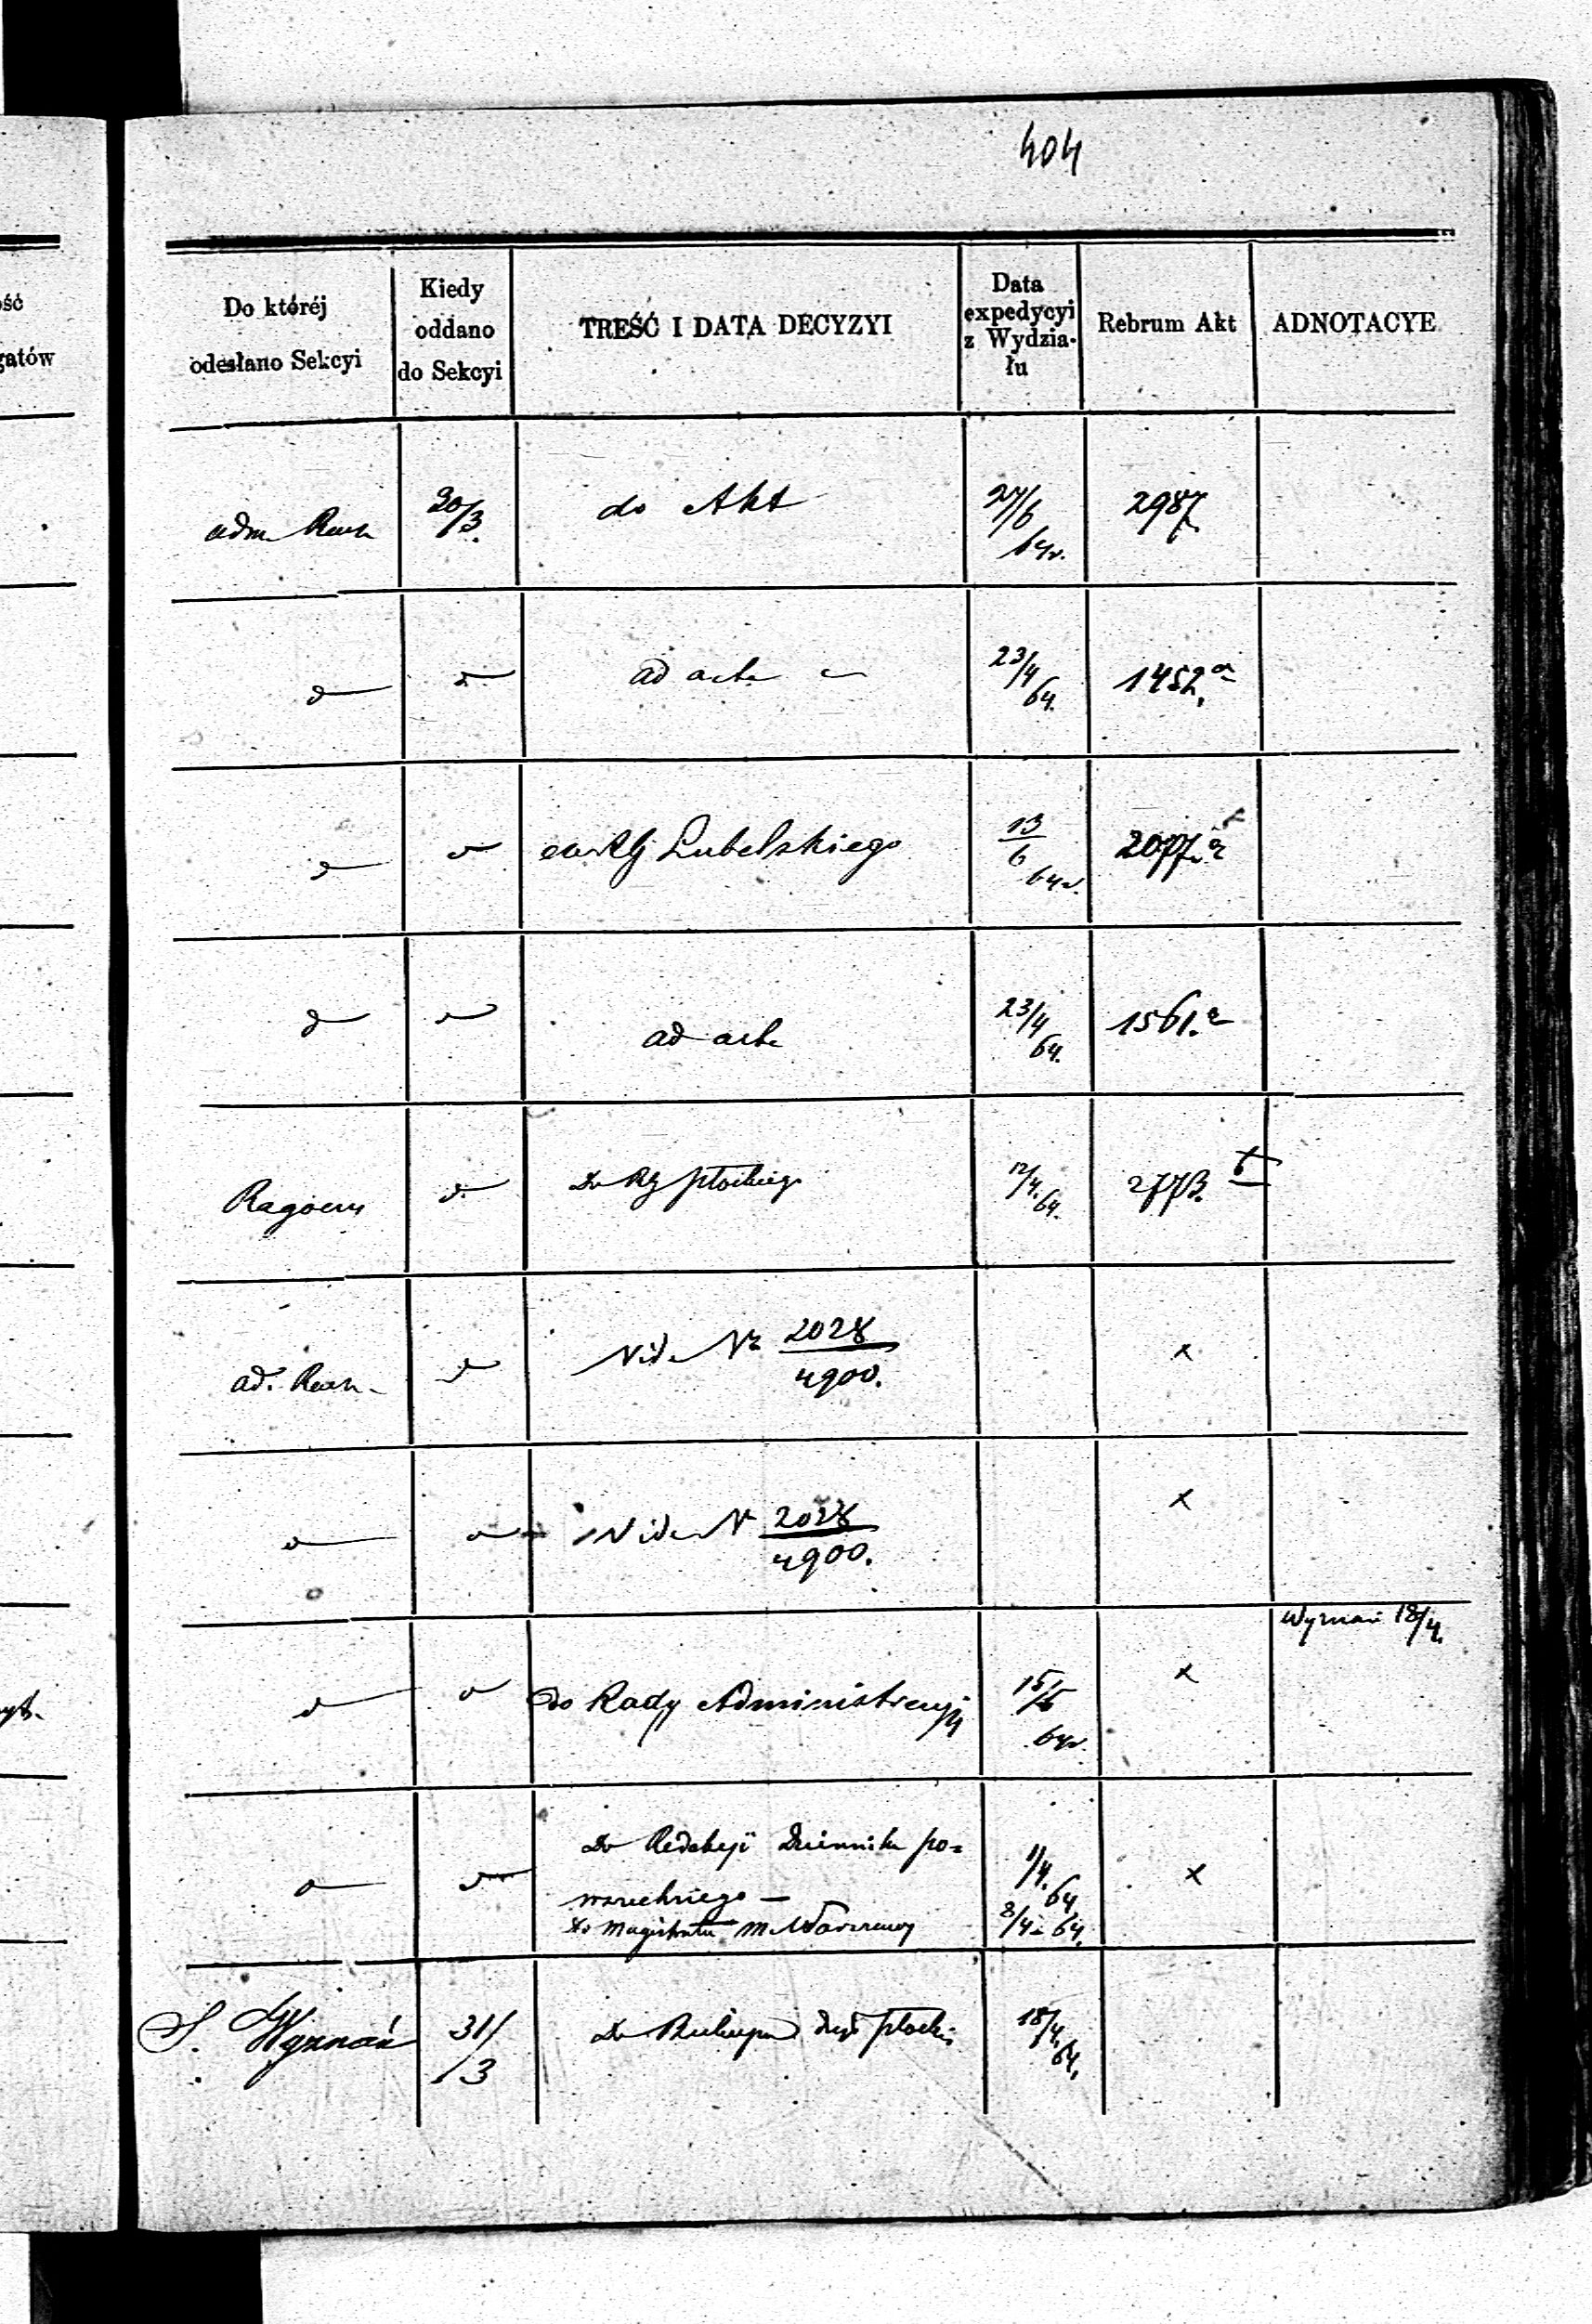 404
ość
gatów
Do któréj
odesłano Sekcyi
Kiedy
oddano
do Sekcyi
TREŚĆ I DATA DECYZYI
Data
expedycyi
z Wydzia-
łu
Rebrum Akt
ADNOTACYE
adm Rach
30/3.
do Akt
27/6
64r.
2987.
ad acta
23/4
64.
1452.a
Lubelskiego
13/6
64r.
2077.a
ad acta
23/4
64.
1561.a
do RG płockiego
12/4.
64.
2773.
ad. Rach.
Vide Nr 2028/4900.
x
Vide Nr 2028/4900.
x
do Rady Administracyj
15/5
64r.
x
Wyznań 18/4.
Do Redakcji Dziennika po=
wszechniego —
Do Magistratu m. Warszawy
1/4. 64
8/4 - 64.
x
S. Wyznań
31/3
Do Biskupa Płocki
18/4.
64.